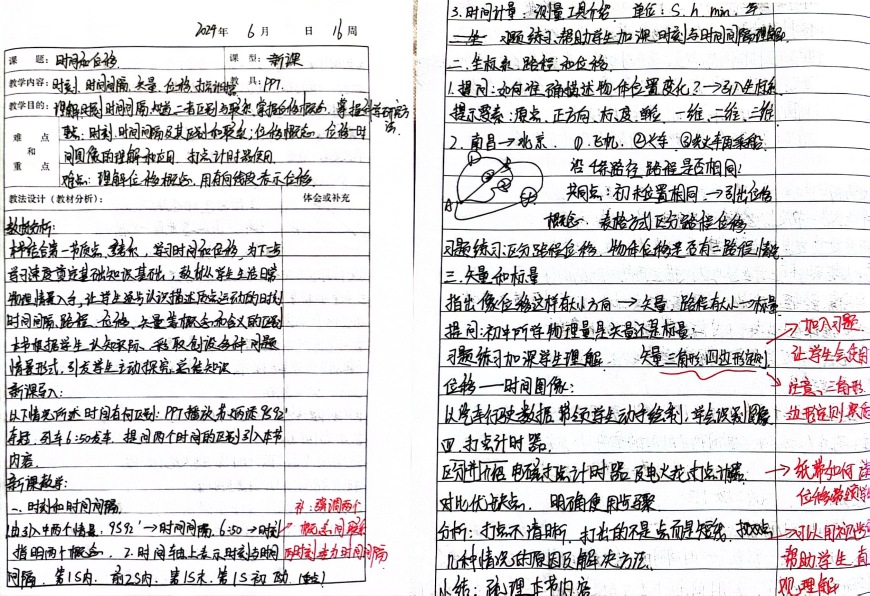 2024年 6月 日 16周
课 题: 时间和位移 课 型: 新课
教学内容: 时刻、时间间隔、矢量、位移、打点计时器 教 具: PPT.
教学目的: 理解时刻、时间间隔,知道二者区别与联系 掌握位移概念
难 点
和
重 点
时刻、时间间隔及其区别和联系;位移概念、位移—时
间图像的理解和应用 打点计时器使用
难点: 理解位移概念, 用有向线段表示位移.
教法设计(教材分析): 体会或补充
教材分析:
学习时间和位移, 为下一步
学习速度奠定基础知识基础,
物理情景入手, 让学生逐步认识描述质点运动的时刻
时间间隔、路程、位移、矢量等概念和含义的区别
本书根据学生认知实际, 采取创设各种问题
情景形式, 引发学生主动探究、总结知识
新课导入:
以下情况所述时间有何区别: PPT播放
列车6:50发车. 提问两个时间的区别引入本节
内容.
新课教学:
一、时刻和时间间隔
补: 强调两个
1.由引入中两个情景, 9s92 → 时间间隔, 6:50 → 时刻
概念间联系
指明两个概念. 2. 时间轴上表示时刻与时间
两时刻差为时间间隔
间隔. 第1s内. 前2s内. 第1s末. 第1s初
3. 时间计量: 测量工具介绍. 单位: s. h. min. 年
习题练习, 帮助学生加深时刻与时间间隔理解
二、坐标系 路程和位移
1. 提问: 如何准确描述物体位置变化? → 引入坐标系
提示要素: 原点、正方向、标度、单位 一维、二维、三维
2. 南昌→北京. ①飞机, ②火车
沿个路径, 路程是否相同?
共同点: 初末位置相同 → 引出位移
A
概念. 表格方式区分路程位移
习题练习: 区分路程位移,
三、矢量和标量
指出像位移这样有大小方向 → 矢量. 路程有大小→标量
提问: 初中所学物理量是矢量还是标量.
加入习题
习题练习加深学生理解 矢量三角形, 四边形定则
让学生会使用
位移——时间图像:
注意, 三角形
带领学生动手绘制, 学会识别图像
边形定则
四. 打点计时器
区分并介绍电磁打点计时器及电火花打点计时器
纸带如何
对比优缺点. 明确使用步骤
位移带领学
分析: 打点不清晰, 打出的不是点而是短线,
可以用
几种情况的原因及解决方法.
帮助学生直
小结: 梳理本节内容
观理解